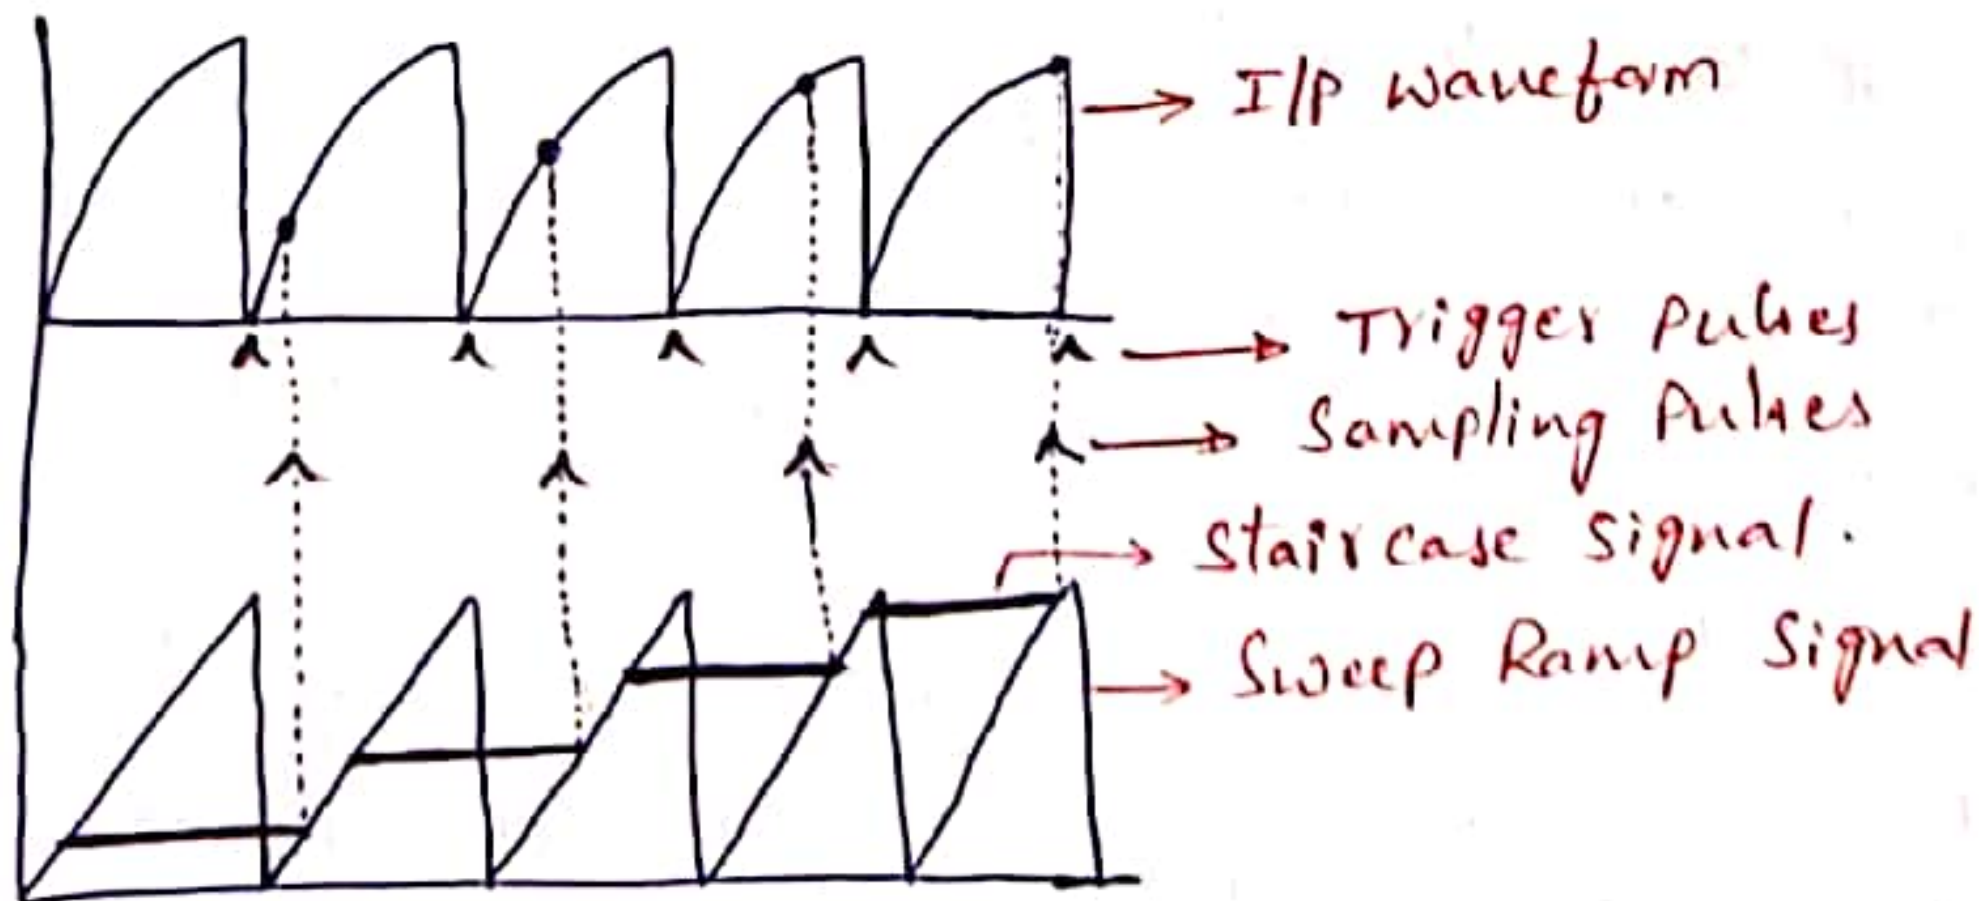 I/P waveform
Trigger Pulses
Sampling Pulses
Staircase signal.
Sweep Ramp Signal